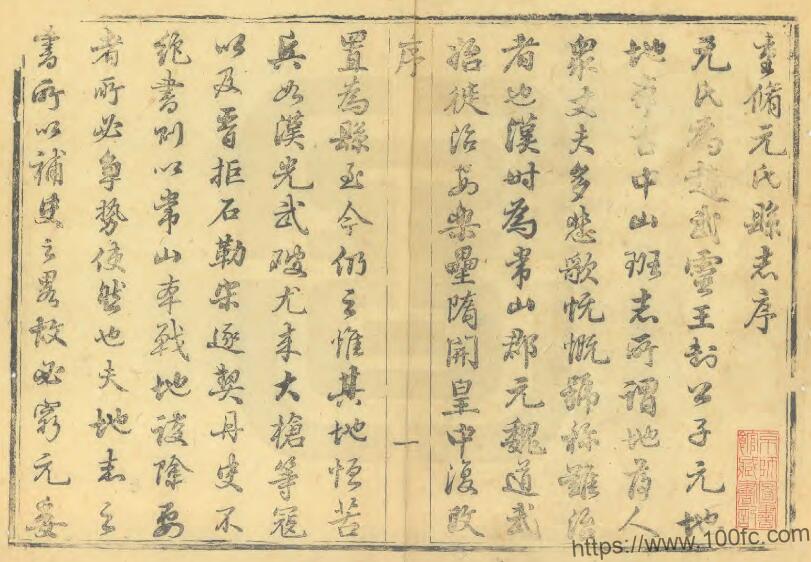 重脩元氏縣志序
元氏為趙武靈王封公子元地
地中山班志所謂地薄人
衆丈夫多悲歌忼慨號称難治
者也漢時為常山郡元魏道武
始徙治安樂壘隋開皇中復改
序
一
置為縣至今仍之惟其地恒苦
兵如漢光武破尤来大槍等冦
以及晋拒石勒宋逐契丹史不
絶書則以常山本戰地設險要
者所必争势使然也夫地志之
書所以補史之畧故必窮元委
https://www.100fc.com